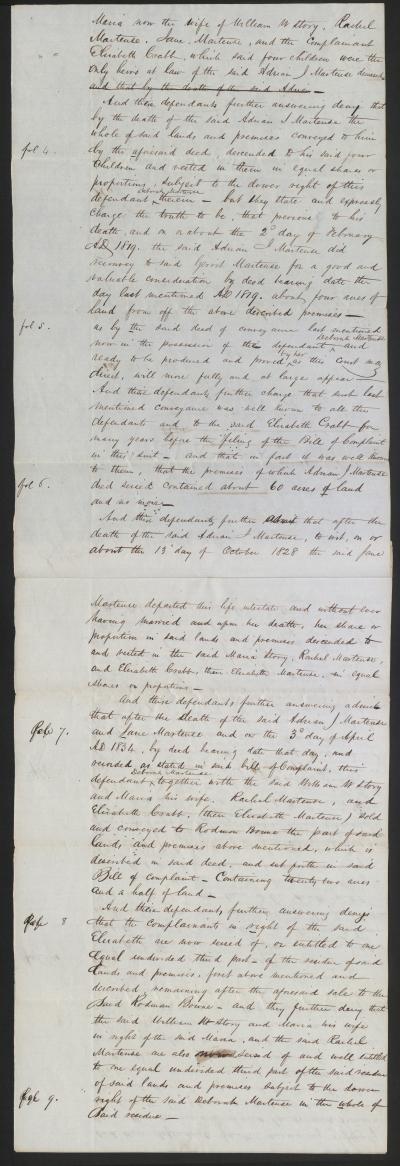 Maria now the wife of William W Story, Rachel
Martense, Jane Martense, and the Complainant
Elizabeth Crabb, which said four children were the
only heirs at law of the said Adrian J Martense deceased
and that by the death of the said Adrian —
And these defendants further answering deny that
by the death of the said Adrian J Martense the
whole of said lands and premises conveyed to him
fol 4.
by the aforesaid deed, descended to his said four
Children and vested in them in equal shares or
proportions, subject to the dower right of this
Deborah Martense
defendant therein — but they state and expressly
charge the truth to be, that previous to his
death, and on or about the 2d day of February
AD 1819, the said Adrian J Martense did
reconvey to said Gerrit Martense for a good and
valuable consideration by deed bearing date the
day last mentioned AD 1819. about four acres of
land from off the above described premises —
fol 5.
as by the said deed of conveyance last mentioned
Deborah Martense
now in the possession of the defendant and
by her
ready to be produced and proved as this Court may
direct, will more fully and at large appear —
And these defendants further charge that such last
mentioned conveyance was well known to all the
defendants and to the said Elizabeth Crabb for
many years before the filing of the Bill of Complaint
in this suit — and that in fact it was well known
to them, that the premises of which Adrian J Martense
fol 6.
died seized contained about 60 acres of land
and no more —
And these defendants further admit that after the
death of the said Adrian J Martense, to wit, on or
about the 13th day of October 1828 the said Jane
Martense departed this life intestate and without ever
having married and upon her death, her share or
proportion in said lands and premises descended to
and vested in the said Maria Story, Rachel Martense,
and Elizabeth Crabb, then Elizabeth Martense, in equal
shares or proportions —
And these defendants further answering admit
that after the death of the said Adrian J Martense
fol 7.
and Jane Martense and on the 3d day of April
AD 1834, by deed bearing date that day, and
recorded as stated in said bill of Complaint, this
Deborah Martense
defendant together with the said William W Story
and Maria his wife, Rachel Martense, and
Elizabeth Crabb, (then Elizabeth Martense) sold
and conveyed to Rodman Bowne the part of said
lands and premises above mentioned, which is
described in said deed, and set forth in said
Bill of complaint — Containing twenty two acres
and a half of land —
And these defendants further answering deny
fol 8
that the Complainants in right of the said
Elizabeth are now seized of, or entitled to one
equal undivided third part of the residue of said
lands and premises, first above mentioned and
described, remaining after the aforesaid sale to the
said Rodman Bowne — and they further deny that
the said William W Story and Maria his wife
in right of the said Maria, and the said Rachel
Martense are also seized of and well entitled
to one equal undivided third part of the said residue
of said lands and premises subject to the dower
fol 9.
right of the said Deborah Martense in the whole of
said residue —